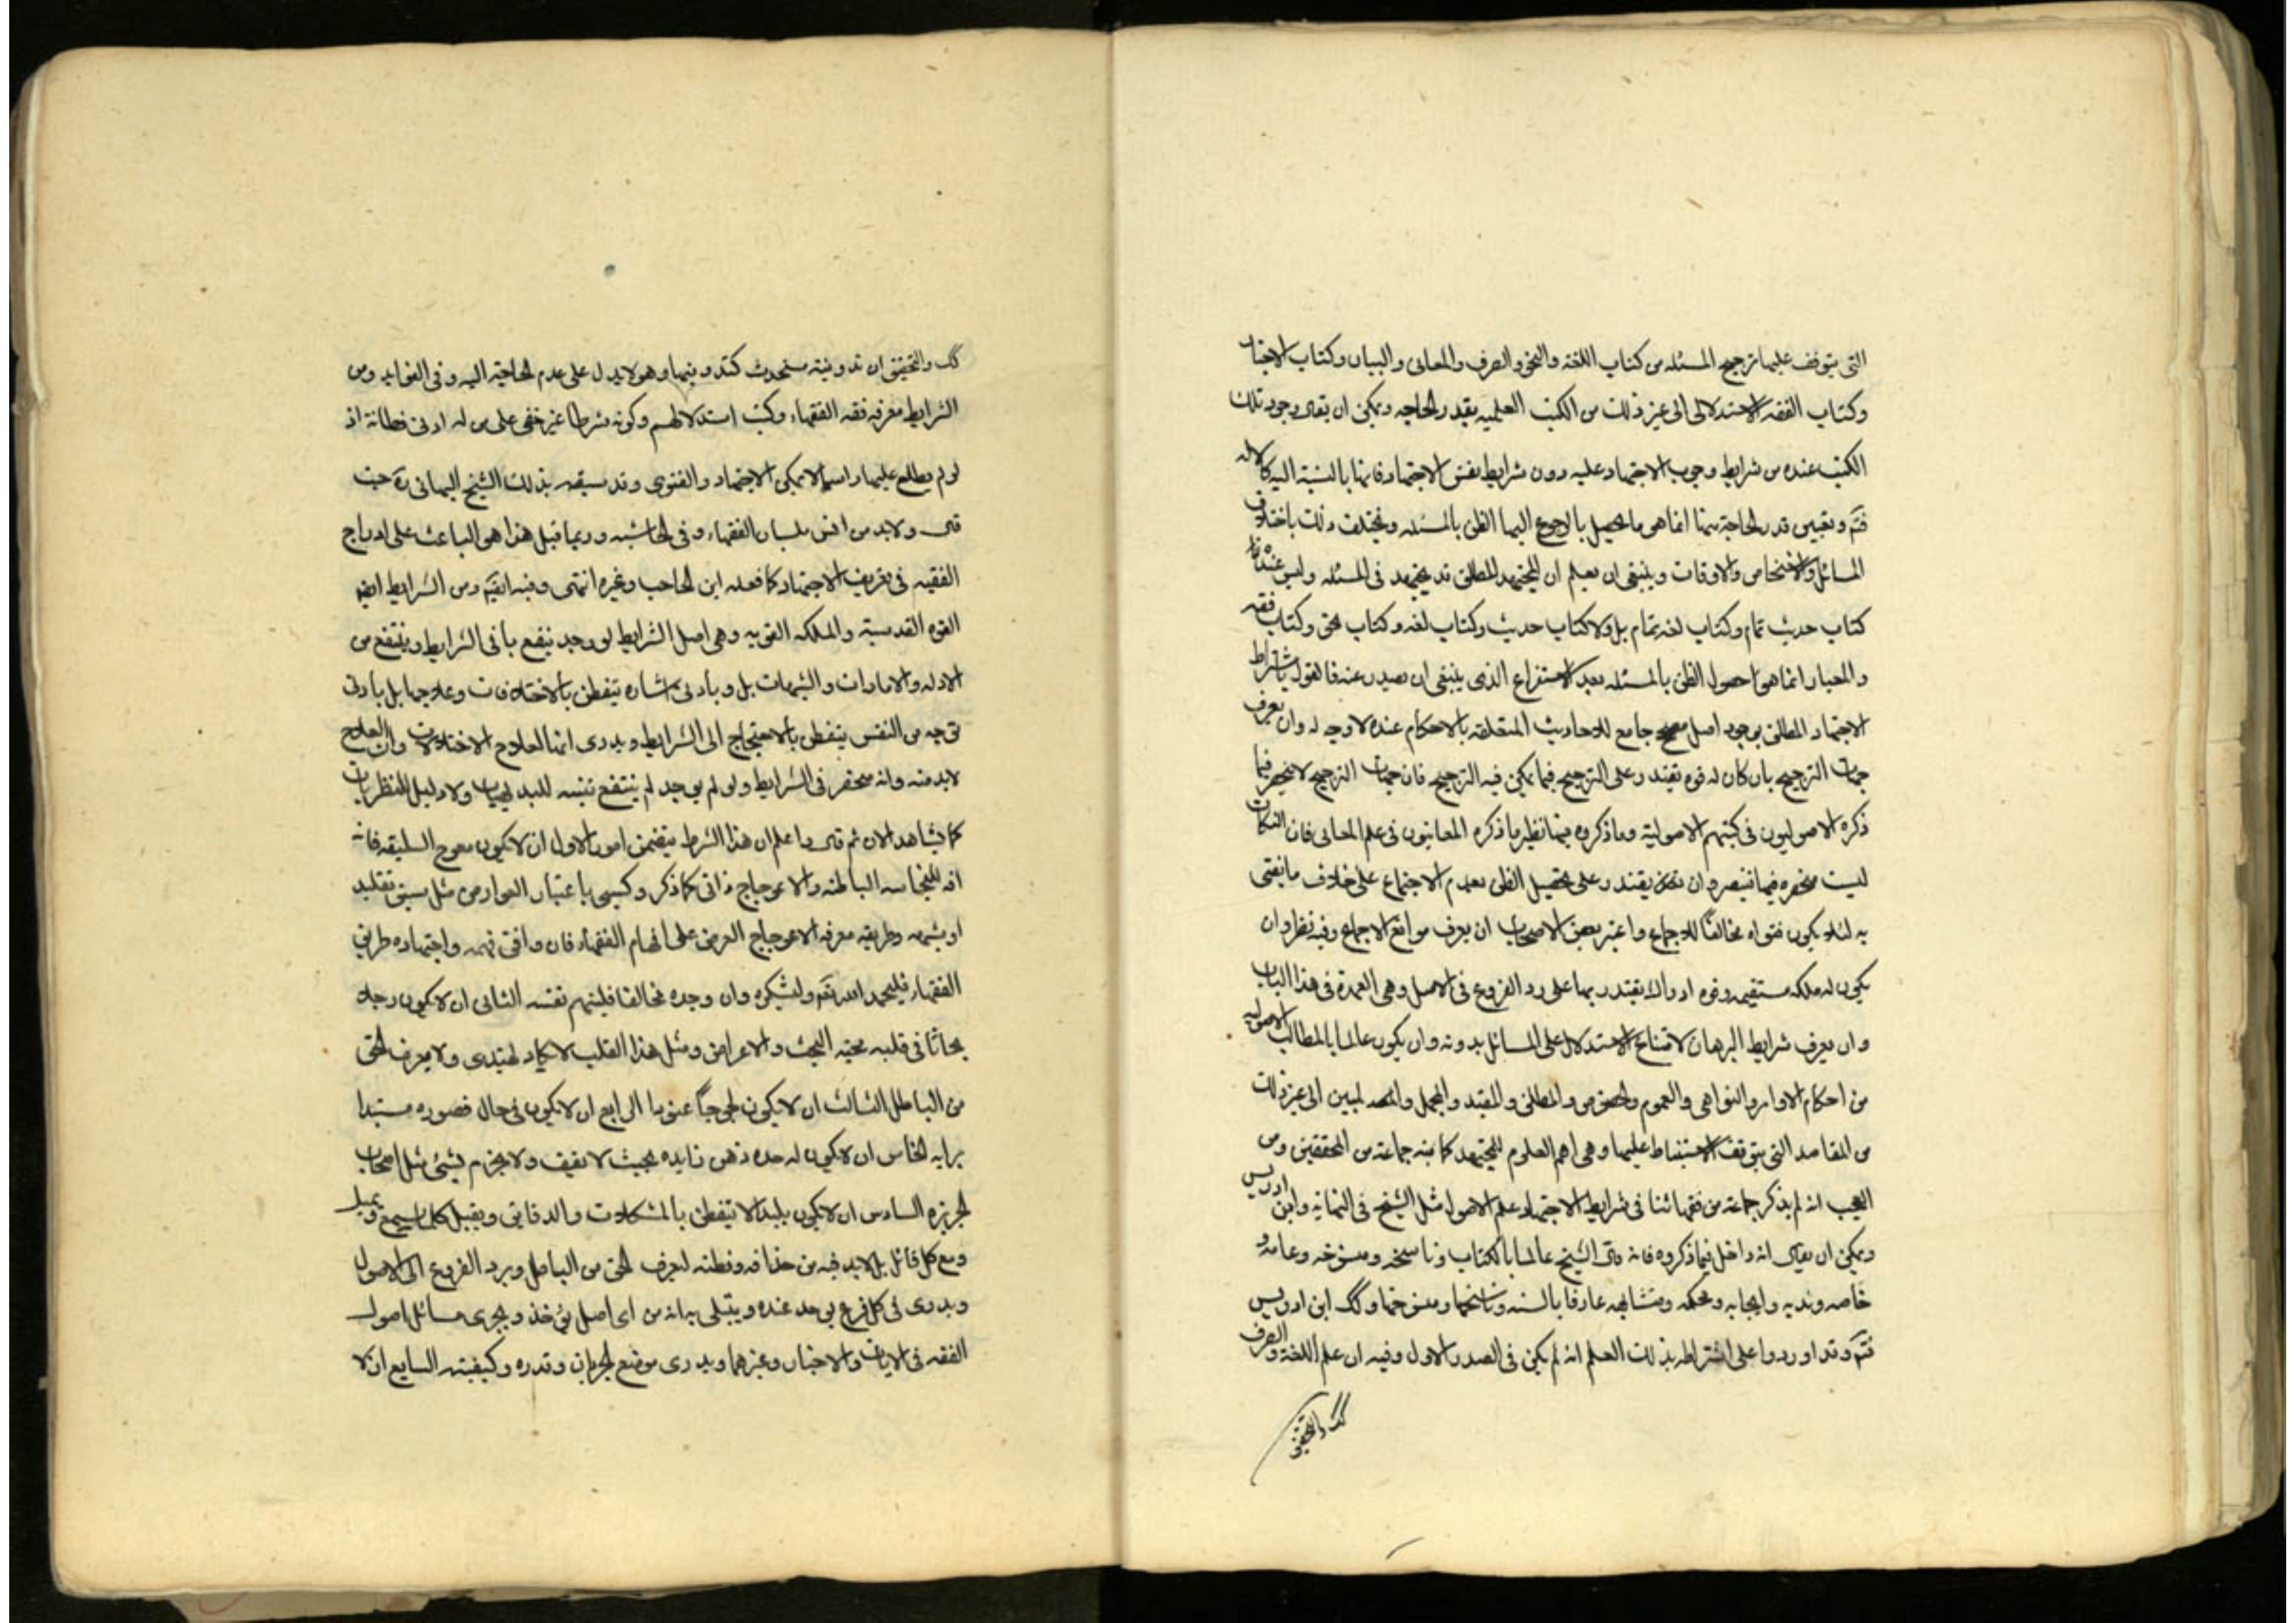 التى يتوقف عليها ترجيح المسئله من كتاب اللغة والنحو والصرف والمعانى والبيان وكتاب الاخبار
وكتاب الفقه الاستدلالى الى غير ذلك من الكتب العلميه بقدر الحاجه ويمكن ان يقال وجود تلك
الكتب عنده من شرايط وجوب الاجتهاد عليه دون شرايط نفس الاجتهاد فانها بالنسبة اليه كالاله
فتم وتعيين قدر الحاجة بها انما هى ما يحصل بالرجوع اليها الظن بالمسئله ويختلف ذلك باختلاف
المسائل والاشخاص والاوقات وينبغى ان يعلم ان المجتهد المطلق قد يجتهد فى المسئله وليس عنده
كتاب حديث تمام وكتاب لغه تمام بل ولا كتاب حديث وكتاب لغه وكتاب نحو وكتاب فقه
والمعيار انما هو حصول الظن بالمسئله بعد الاستفراغ الذى ينبغى ان يصدر عنه فالقول باشتراط
الاجتهاد المطلق بوجود اصل مصحح جامع للاحاديث المتعلقه بالاحكام عنده لا وجه له وان يعرف
جهات الترجيح بان كان له قوه يقتدر على الترجيح فيما يمكن فيه الترجيح فان جهات الترجيح لا ينحصر فيما
ذكره الاصوليون فى كتبهم الاصولية وما ذكروه فيها نظير ما ذكره المعانيون فى علم المعانى فان النكات
ليست منحصره فيها فتبصر وان يقتدر على تحصيل الظن بعدم الاجتماع على خلاف ما يفتى
به لئلا يكون فتواه مخالفا للاجماع واعتبر بعض الاصحاب ان يعرف مواقع الاجماع وفيه نظر وان
يكون له ملكه مستقيمه وقوه ادراك يقتدر بها على رد الفروع فى الاصل وهى العمدة فى هذا الباب
وان يعرف شرايط البرهان لامتناع الاستدلال على المسائل بدونه وان يكون عالما بالمطالب الاصوليه
من احكام الاوامر والنواهى والعموم والخصوص والمطلق والمقيد والمجمل والمبين الى غير ذلك
من المقاصد التى يتوقف الاستنباط عليها وهى اهم العلوم للمجتهد كما نبه جماعة من المحققين ومن
العجب انه لم يذكر جماعة من فقهائنا فى شرايط الاجتهاد علم الاصول مثل الشيخ فى النهايه وابن ادريس
ويمكن ان يقال انه داخل فيما ذكروه فانه قال الشيخ عالما بالكتاب وناسخه ومنسوخه وعامه و
خاصه وندبه وايجابه ومحكمه ومتشابهه عارفا بالسنه وناسخها ومنسوخها وكك ابن ادريس
فتم وقد اوردوا على اشتراطه بذلك العلم انه لم يكن فى الصدر الاول وفيه ان علم اللغة والصرف
كك والتحقيق
كك والتحقيق ان تدوينه مستحدث كتدوينها وهو لا يدل على عدم الحاجة اليه وفى الفوايد ومن
الشرايط معرفه فقه الفقهاء وكتب استدلالهم وكونه شرطا غير خفى على من له ادنى فطانة اذ
لو لم يطلع عليها راسا لا يمكن الاجتهاد والفتوى وقد سبقه بذلك الشيخ البهائى ره حيث
قال ولا بد من انس بلسان الفقهاء وفى الحاشيه وربما قيل هذا هو الباعث على ادراج
الفقيه فى تعريف الاجتهاد كما فعله ابن الحاجب وغيره انتهى وفيه ايضا ومن الشرايط ايضا
القوه القدسية والملكه القويه وهى اصل الشرايط لو وجد ينفع باقى الشرايط وينتفع من
الادله والامارات والشبهات بل وبادنى اشاره يتفطن بالاختلافات وعلاجها بل بادنى
توجه من النفس يتفطن بالاحتياج الى الشرايط ويدرى انها العلاج الاختلالات وان العلاج
لابد منه وانه منحصر فى الشرايط ولو لم يوجد لم ينتفع تنبيه للبديهيات ولا دليل للنظريات
كما يشاهد الان ثم قال واعلم ان هذا الشرط يتضمن امورا الاول ان لا يكون معوج السليقه فانه
افه للحاسه الباطنه والاعوجاج ذاتى كما ذكر وكسبى باعتبار العوارض مثل سبق تقليد
او شبهه وطريقه معرفه الاعوجاج العرض على افهام الفقهاء فان وافق فهمه واجتهاده طريق
الفقهاء فليحمد الله تعم وليشكره وان وجده مخالفا فليتهم نفسه الثانى ان لا يكون رجلا
بحاثا فى قلبه محبة البحث والاعراض ومثل هذا القلب لا يكاد يهتدى ولا يعرف الحق
من الباطل الثالث ان لا يكون لجوجا عنودا الرابع ان لا يكون فى حال قصوره مستبدا
برايه الخامس ان لا يكون له حده ذهن زايده بحيث لا يقف ولا يجزم بشئ مثل اصحاب
الجربزه السادس ان لا يكون بليدا لا يتفطن بالمشكلات والدقايق ويقبل كلما يسمع ويميل
ومع كل قائل بل لابد فيه من حذاقه وفطنه ليعرف الحق من الباطل ويرد الفروع الى الاصول
ويدرى فى كل فرع يوجد عنده ويبتلى به انه من اى اصل يؤخذ ويجرى مسائل اصول
الفقه فى الايات والاخبار وغيرهما ويدرى موضع الجريان وقدره وكيفيته السابع ان لا